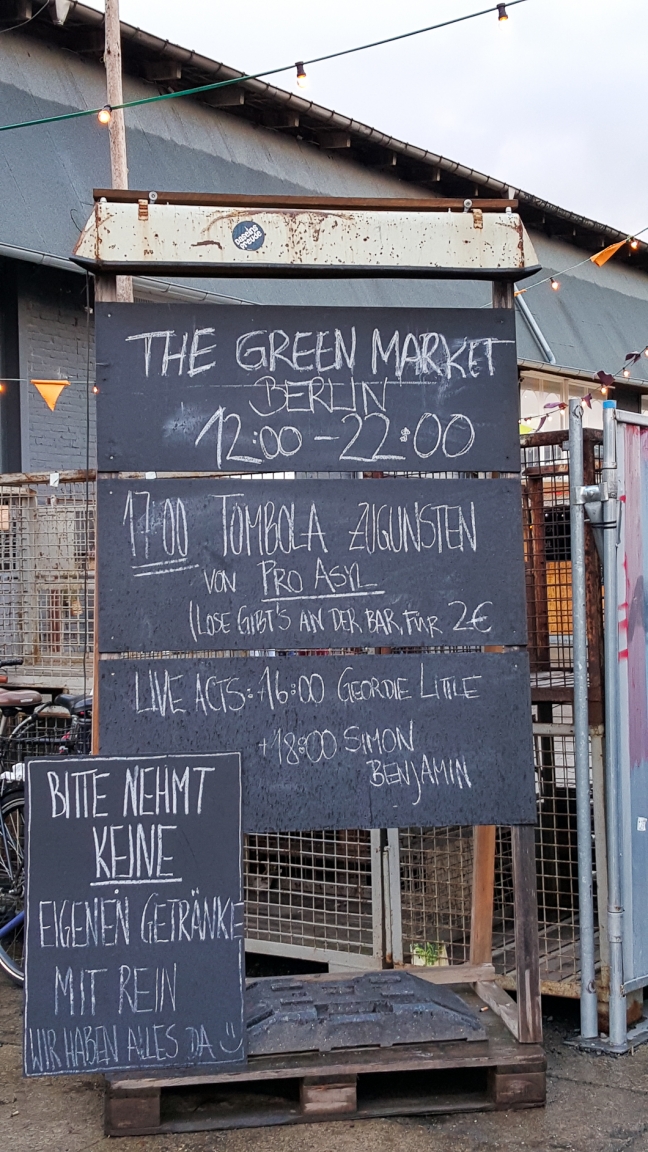 THE GREEN MARKET
BERLIN
12:00 - 22:00
17:00 TOMBOLA ZUGUNSTEN
VON PRO ASYL
(LOSE GIBT'S AN DER BAR, FÜR 2€
LIVE ACTS: 16:00 GEORDIE LITTLE
+18:00 SIMON
BENJAMIN
BITTE NEHMT
KEINE
EIGENEN GETRÄNKE
MIT REIN
WIR HABEN ALLES DA :)